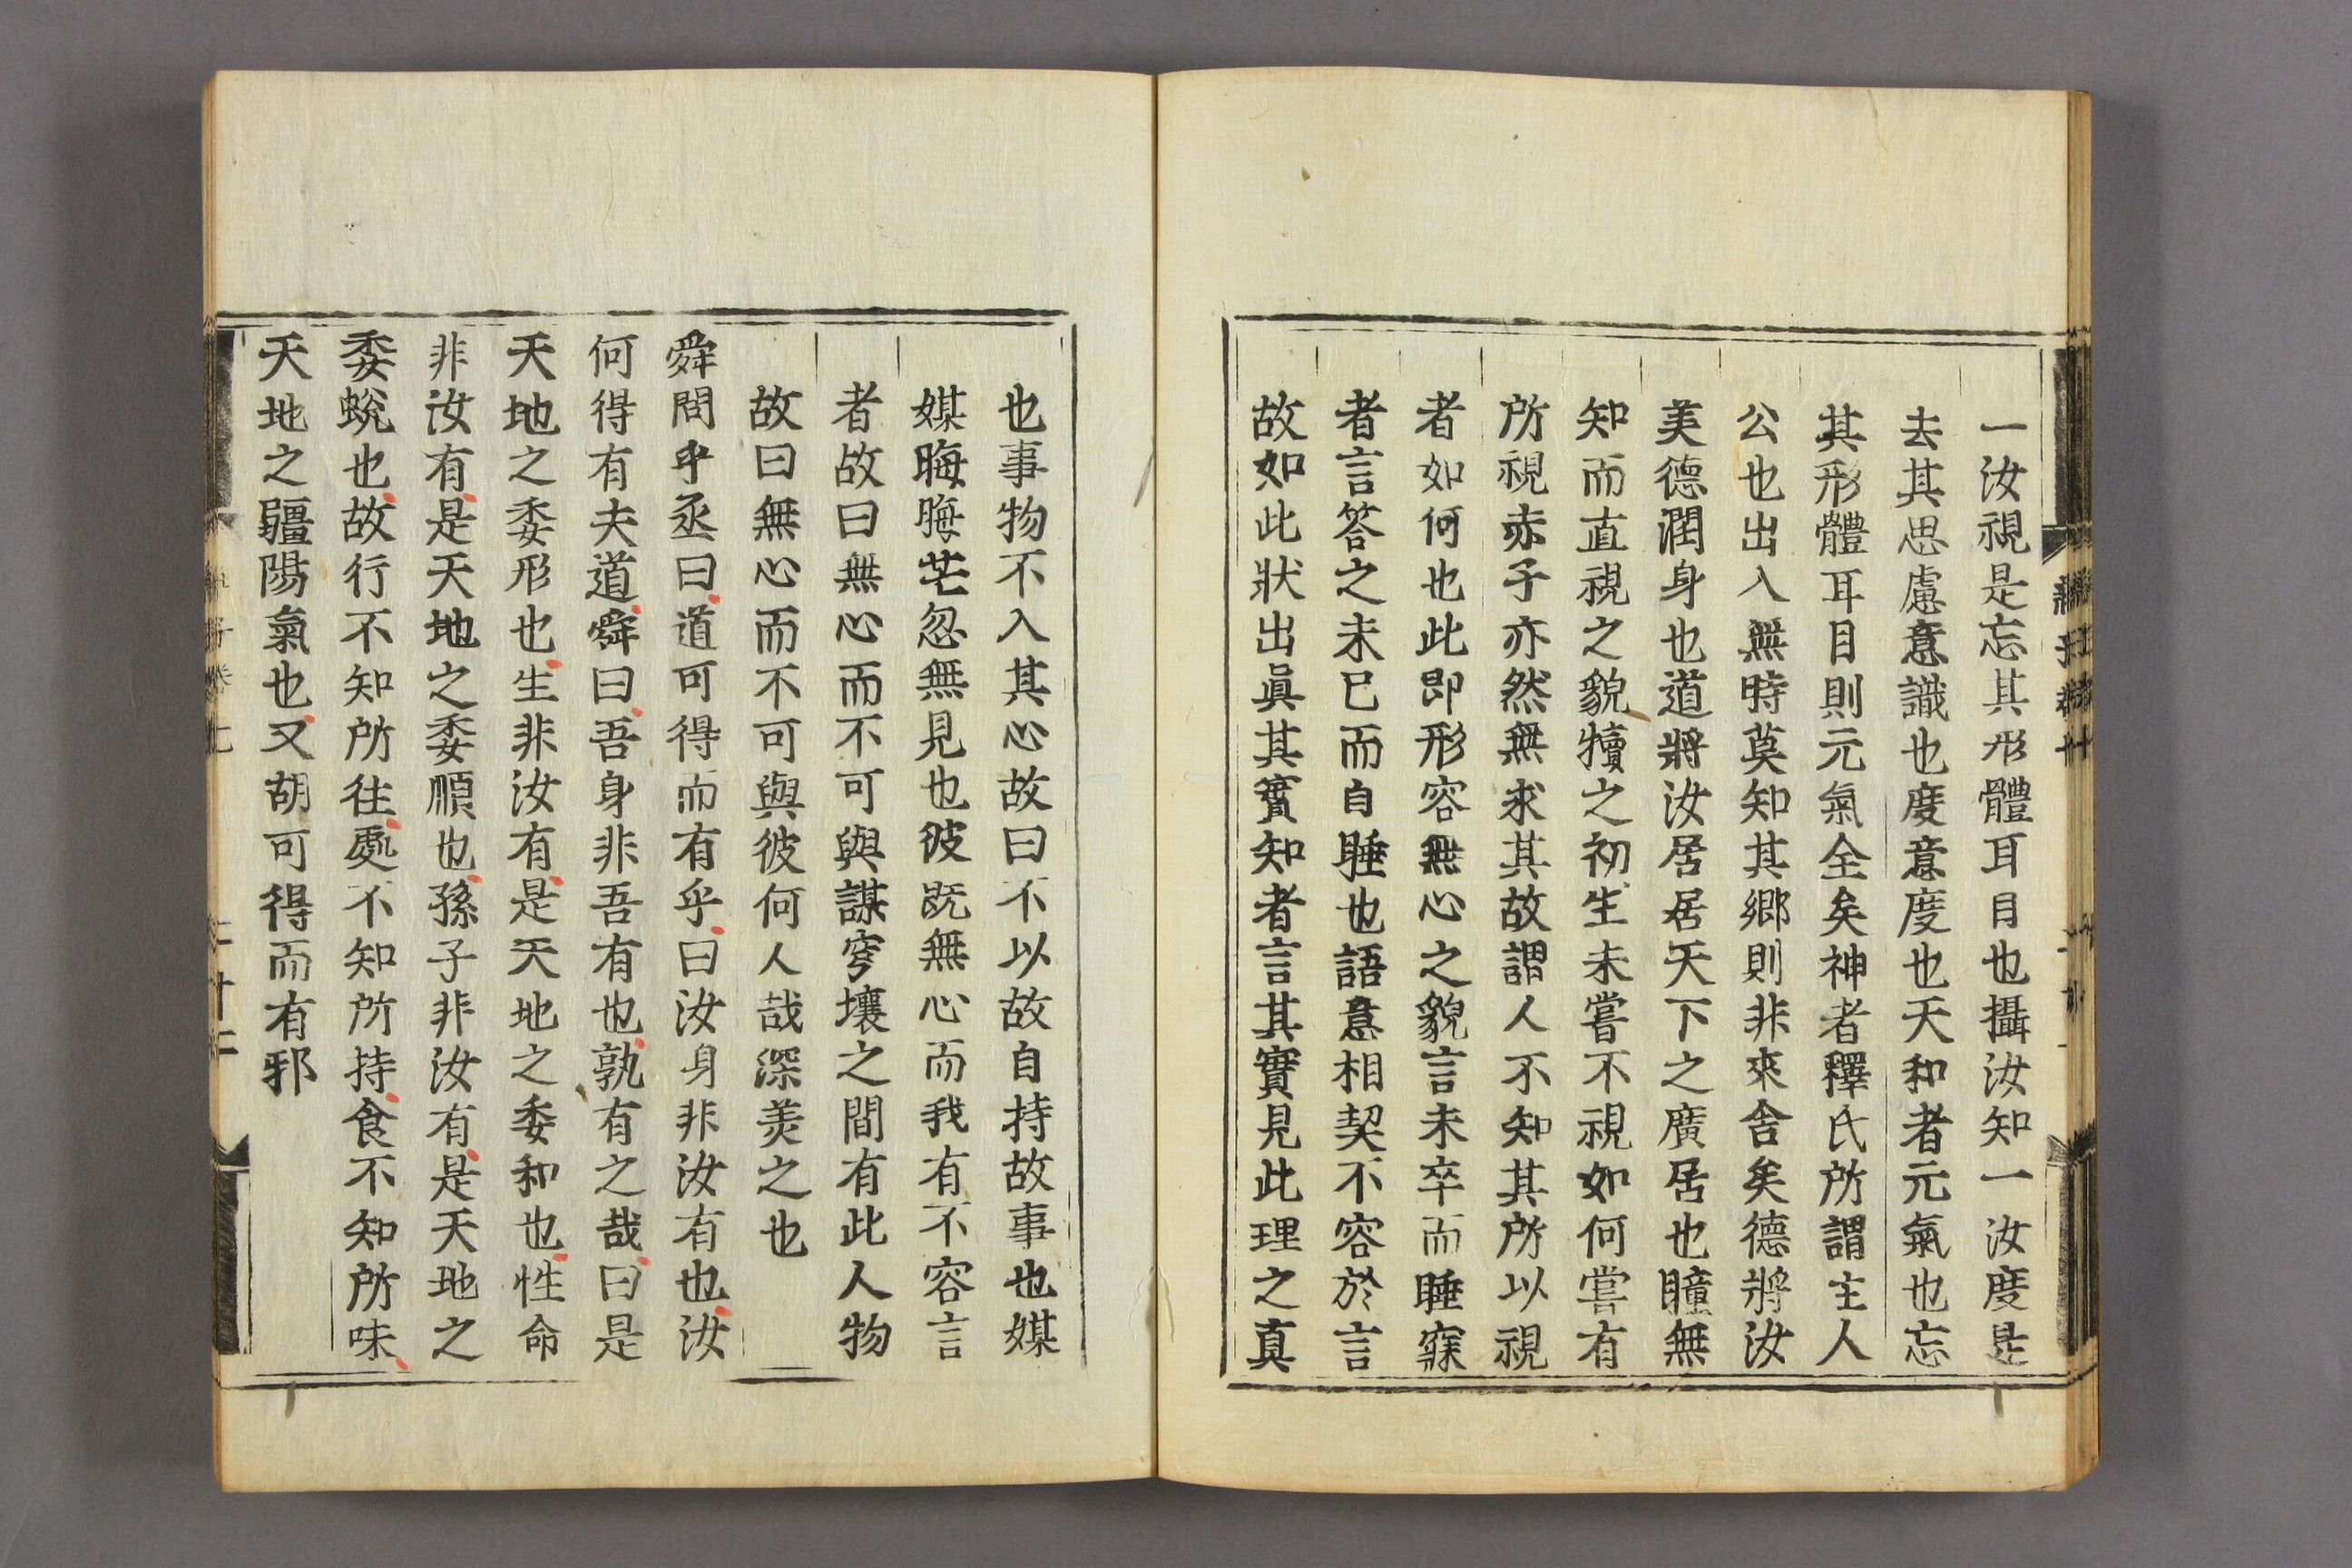 一汝視是忘其形體耳目也攝汝知一汝度是
去其思慮意識也度意度也天和者元氣也忘
其形體耳目則元氣全矣神者釋氏所謂主人
公也出入無時莫知其鄉則非來舍矣德將汝
美德潤身也道將汝居居天下之廣居也瞳無
知而直視之貌犢之初生未嘗不視如何嘗有
所視赤子亦然無求其故謂人不知其所以視
者如何也此即形容無心之貌言未卒而睡寐
者言答之未已而自睡也語意相契不容於言
故如此狀出眞其實知者言其實見此理之真
也事物不入其心故曰不以故自持故事也媒
媒晦晦芒忽無見也彼既無心而我有不容言
者故曰無心而不可與謀穹壤之間有此人物
故曰無心而不可與彼何人哉深羡之也
舜問乎丞曰道可得而有乎曰汝身非汝有也汝
何得有夫道舜曰吾身非吾有也孰有之哉曰是
天地之委形也生非汝有是天地之委和也性命
非汝有是天地之委順也孫子非汝有是天地之
委蛻也故行不知所往處不知所持食不知所味
天地之疆陽氣也又胡可得而有邪